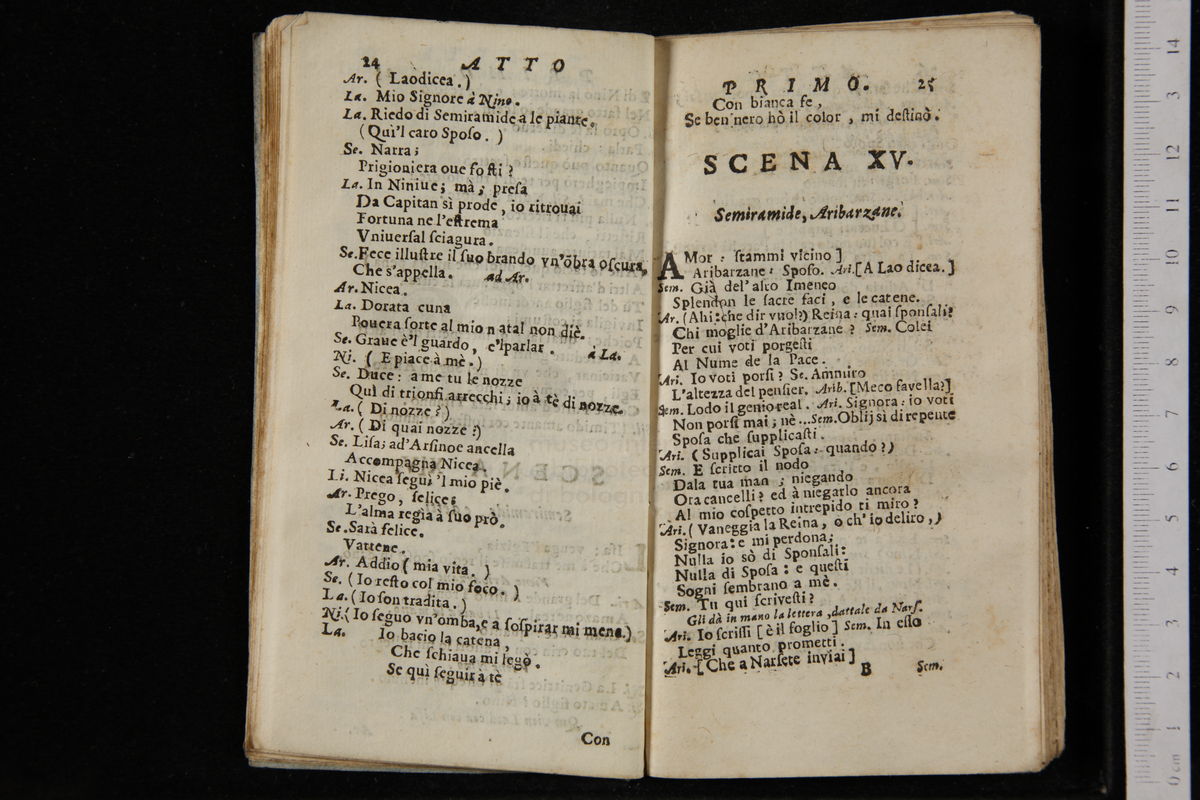 24 ATTO
Ar. ( Laodicea. )
La. Mio Signore à Nino.
La. Riedo di Semiramide a le piante.
( Quì'l caro Sposo. )
Se. Narra;
Prigioniera oue fosti ?
La. In Niniue; mà; presa
Da Capitan sì prode, io ritrouai
Fortuna ne l'estrema
Vniuersal sciagura.
Se. Fece illustre il suo brando vn'õbra oscura,
Che s'appella. ad Ar.
Ar. Nicea.
La. Dorata cuna
Pouera sorte al mio natal non diè.
Se. Graue è'l guardo, e'lparlar. à La.
Ni. ( E piace à mè. )
Se. Duce: a me tu le nozze
Quì di trionfi arrecchi; io à tè di nozze.
La. ( Di nozze ? )
Ar. ( Di quai nozze ?)
Se. Lisa; ad'Arsinoe ancella
Accompagna Nicea.
Li. Nicea segui 'l mio piè.
Ar. Prego, felice;
L'alma regia à suo prò.
Se. Sarà felice.
Vattene.
Ar. Addio ( mia vita. )
Se. (Io resto col mio foco. )
La. (Io son tradita. )
Ni. (Io seguo vn'omba, e a sospirar mi meno.)
La. Io bacio la catena,
Che schiaua mi legò.
Se quì seguir à tè
Con
PRIMO. 25
Con bianca fe,
Se ben nero hò il color, mi destinò.
SCENA XV.
Semiramide, Aribarzane.
AMor: stammi vicino ]
Aribarzane: Sposo. Ari. [A Lao dicea. ]
Sem. Già del'alto Imeneo
Splendon le sacre faci, e le catene.
Ar. (Ahi: che dir vuol?) Reina: quai sponsali?
Chi moglie d'Aribarzane ? Sem. Colei
Per cui voti porgesti
Al Nume de la Pace.
Ari. Io voti porsi ? Se. Ammiro
L'altezza del pensier. Arib. [Meco fauella?]
Sem. Lodo il genio real. Ari. Signora: io voti
Non porsi mai; nè... Sem. Oblij sì di repente
Sposa che supplicasti.
Ari. ( Supplicai Sposa: quando ? )
Sem. E scritto il nodo
Dala tua man; niegando
Ora cancelli? ed à niegarlo ancora
Al mio cospetto intrepido ti miro ?
Ari. ( Vaneggia la Reina, o ch' io deliro, )
Signora: e mi perdona;
Nulla io sò di Sponsali:
Nulla di Sposa: e questi
Sogni sembrano a mè.
Sem. Tu qui scriuesti ?
Gli dà in mano la lettera, dattale da Nars.
Ari. Io scrissi [ è il foglio ] Sem. In esso
Leggi quanto prometti.
Ari. [ Che a Narsete inviai ]
B Sem.